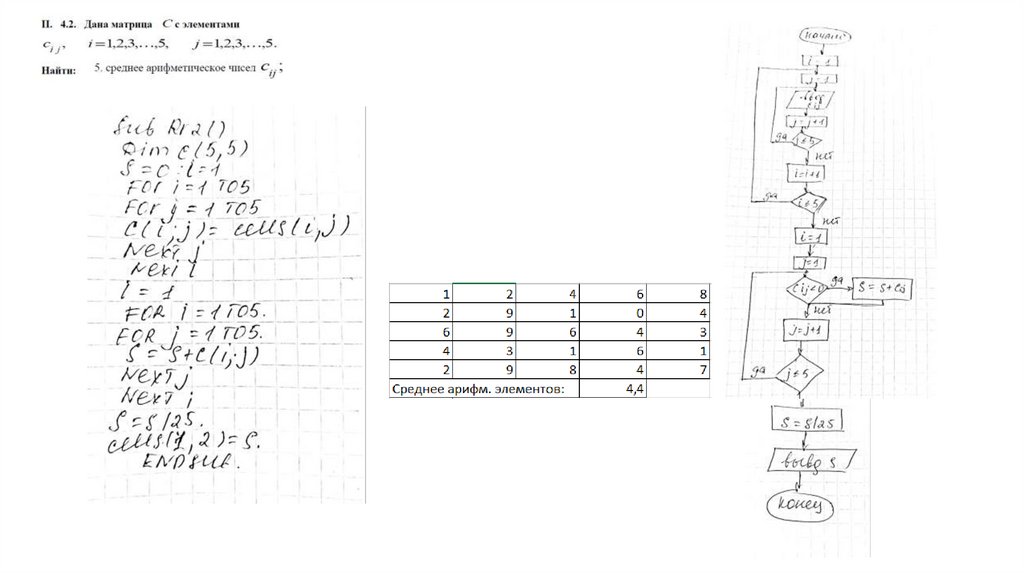 П. 4.2. Дана матрица C с элементами
c_ij, i=1,2,3,…,5, j=1,2,3,…,5.
Найти: 5. среднее арифметическое чисел c_ij;
Sub Rr2()
Dim C(5,5)
S=0:i=1
For i=1 TO5
For j=1 TO5
C(i;j)= cells(i,j)
Next j
Next i
i = 1
FOR i=1TO5.
FOR j=1TO5.
S=S+C(i;j)
Next j
Next i
S=S/25.
cells(1,2)=S.
ENDSUB.
1 2 4 6 8
2 9 1 0 4
6 9 6 4 3
4 3 1 6 1
2 9 8 4 7
Среднее арифм. элементов: 4,4
начало
i=1
j=1
ввод
cij
j=j+1
да j≤5
нет
i=i+1
да i≤5
нет
i=1
j=1
Cij<0 да S=S+Cij
нет
j=j+1
да j≤5
S=S/25
вывод S
конец